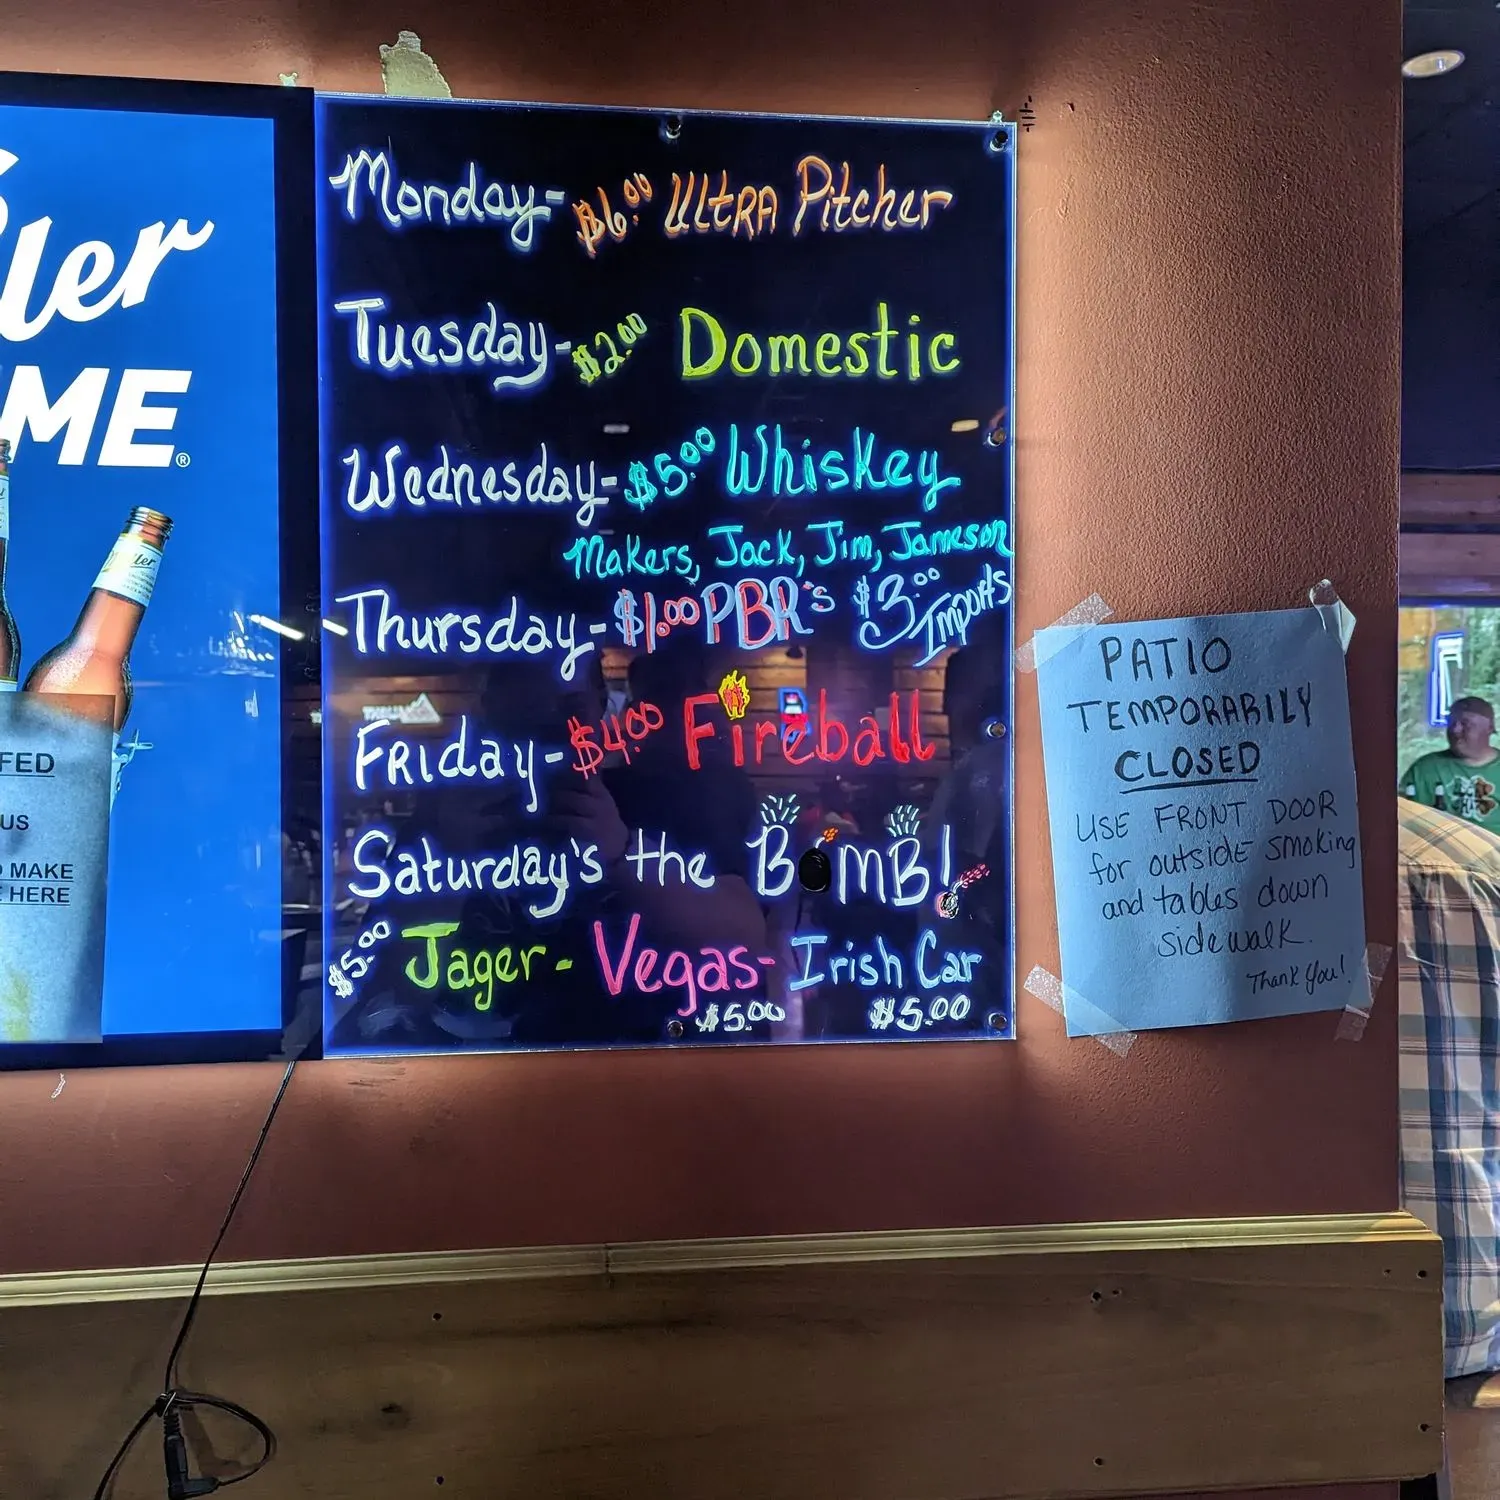 ler
ME®
ler
FED
US
MAKE
HERE
Monday- $6.00 ULtRA Pitcher
Tuesday- $2.00 Domestic
Wednesday- $5.00 Whiskey
Makers, Jack, Jim, Jameson
Thursday- $1.00 PBR's $3.00 Imports
Friday- $4.00 Fireball
Saturday's the BOMB!
$5.00 Jager- Vegas- Irish Car
$5.00 $5.00
PATIO
TEMPORARILY
CLOSED
USE FRONT DOOR
for outside smoking
and tables down
sidewalk.
Thank You!